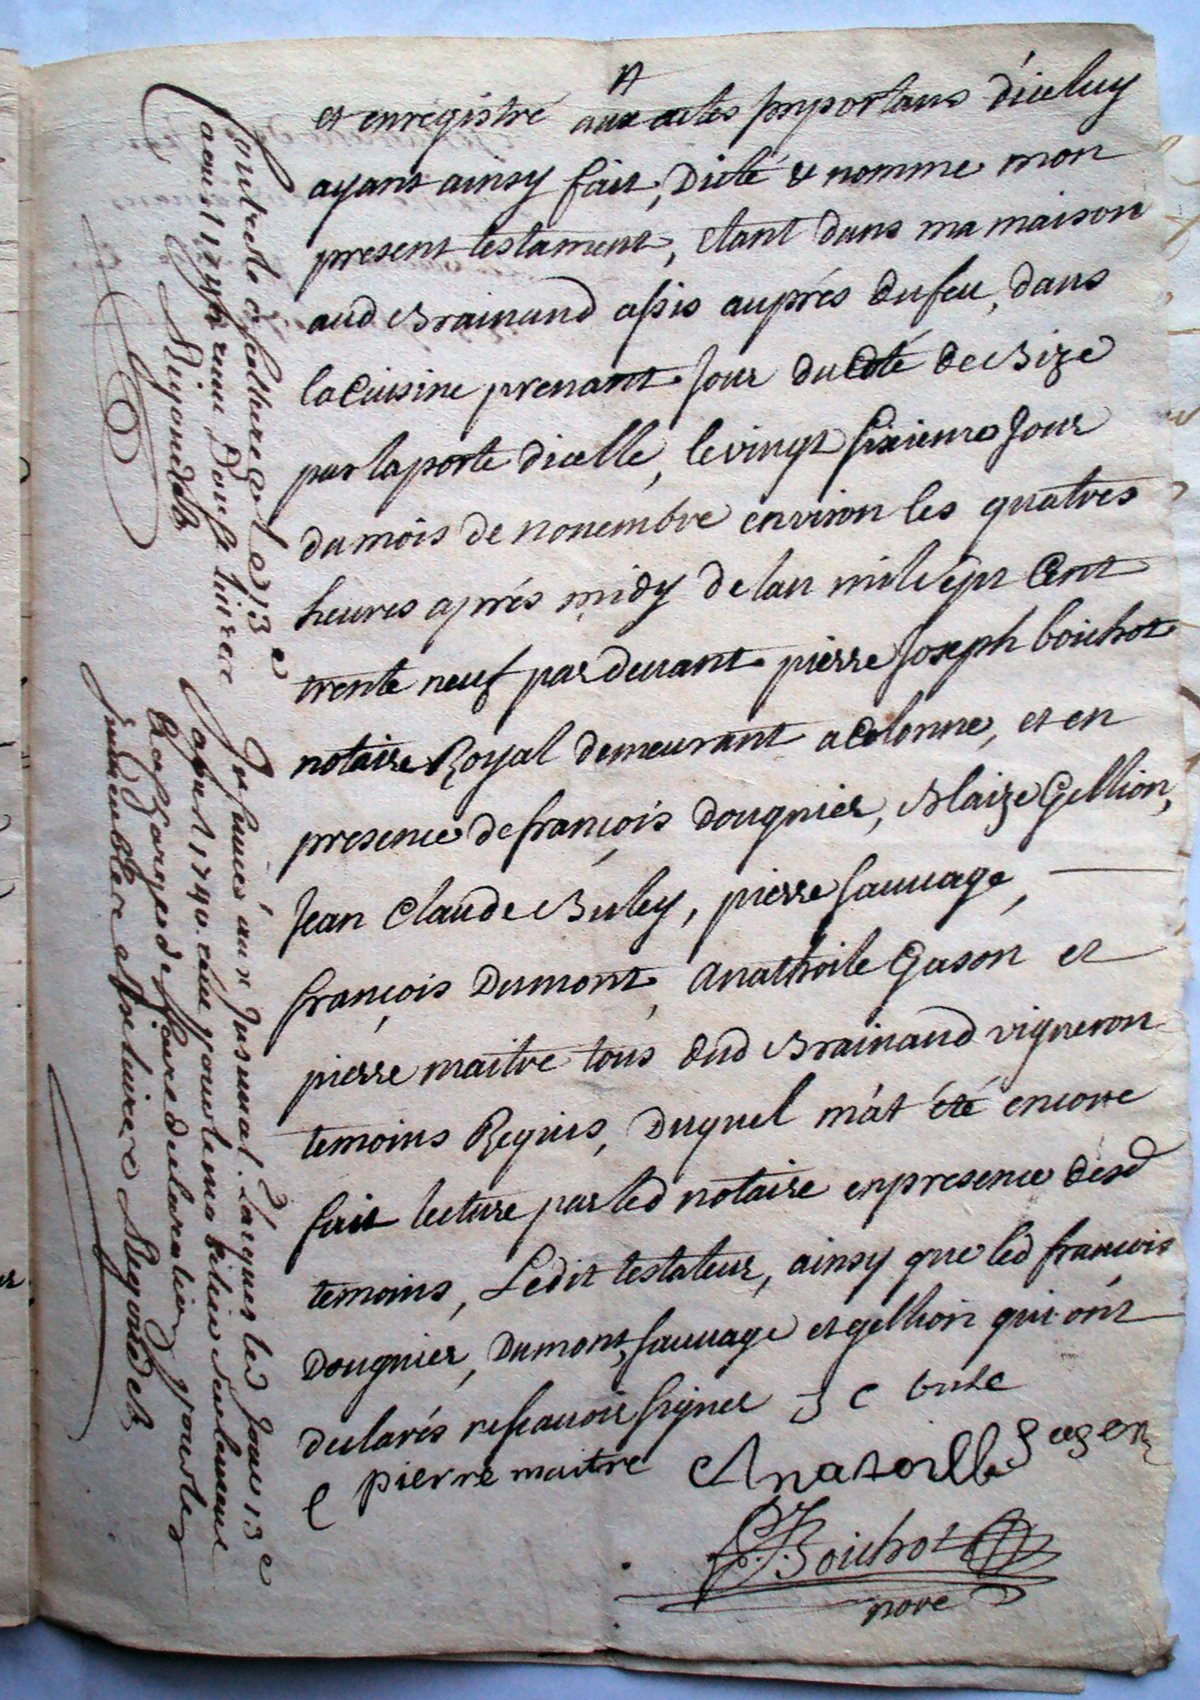 et enregistré aux actes importans d'iceluy
ayant ainsy fait, Dicté & nommé mon
present testament, etant dans ma maison
aud Brainand assis auprés du feu, dans
la Cuisine prenant Jour du Coté de Bize
par la porte dicelle, le vingt sixieme Jour
du mois de novembre environ les quatres
heures aprés midy de lan mil sept Cent
trente neuf par devant pierre Joseph boichot
notaire Royal demeurant a Colonne, et en
presence de françois Dougnier, Blaize Gellion,
Jean Claude Buley, pierre Sauvage,
françois Dumont, Anathoile Gason et
pierre maitre tous dud Brainand vigneron
temoins Requis, Duquel m'at été encore
fait lecture par led notaire en presence desd
temoins, Ledit testateur, ainsy que led françois
Dougnier, Dumont, Sauvage et gellion qui ont
declarés ne scavoir signer J C bule
pierre maitre Anatoille gason
P. J. Boichot
nore
Controllé a Sellieres le 13e
aoust 1749 reçu Douze livres
Rigoudet
Insinué au Insinuat. Laïque led Jour 13e
aoust 1749. sauf pour le mobilier seulement
a la charge de faire declaration pour les
immeubles Rigoudet